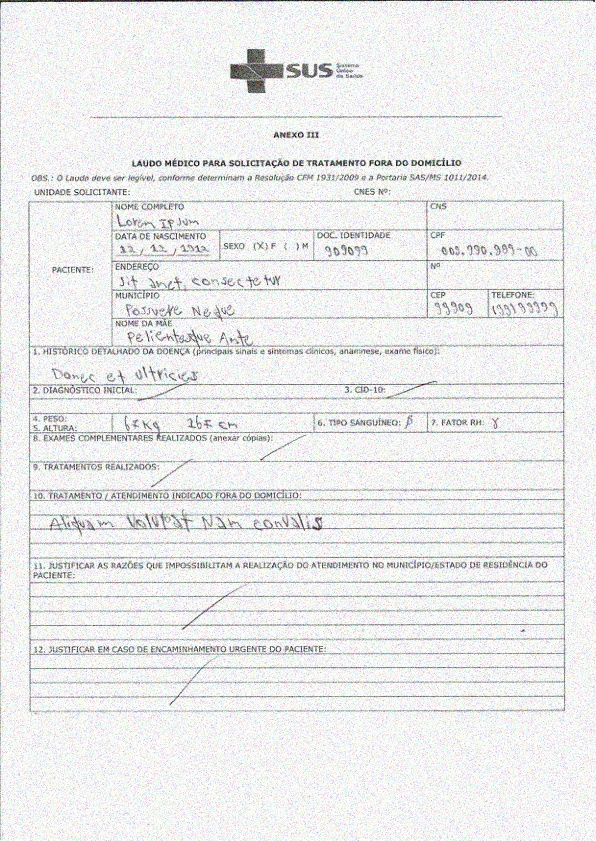 SUS Sistema Único de Saúde
ANEXO III
LAUDO MÉDICO PARA SOLICITAÇÃO DE TRATAMENTO FORA DO DOMICÍLIO
OBS.: O Laudo deve ser legível, conforme determinam a Resolução CFM 1931/2009 e a Portaria SAS/MS 1011/2014.
UNIDADE SOLICITANTE: CNES Nº:
PACIENTE:
NOME COMPLETO CNS
Lorem Ipsum
DATA DE NASCIMENTO SEXO (X) F ( ) M DOC. IDENTIDADE CPF
12/12/1912 909099
ENDEREÇO Nº
sit amet, consectetur
MUNICÍPIO CEP TELEFONE:
Possuere Neque 99909
NOME DA MÃE
Pelientesque Ante
1. HISTÓRICO DETALHADO DA DOENÇA (principais sinais e sintomas clínicos, anamnese, exame físico):
Donec et ultricies
2. DIAGNÓSTICO INICIAL: 3. CID-10:
4. PESO:
5. ALTURA: 6. TIPO SANGUÍNEO: 7. FATOR RH:
8. EXAMES COMPLEMENTARES REALIZADOS (anexar cópias):
9. TRATAMENTOS REALIZADOS:
10. TRATAMENTO / ATENDIMENTO INDICADO FORA DO DOMICÍLIO:
Aliquam volutpat Nam convalis
11. JUSTIFICAR AS RAZÕES QUE IMPOSSIBILITAM A REALIZAÇÃO DO ATENDIMENTO NO MUNICÍPIO/ESTADO DE RESIDÊNCIA DO
PACIENTE:
12. JUSTIFICAR EM CASO DE ENCAMINHAMENTO URGENTE DO PACIENTE: